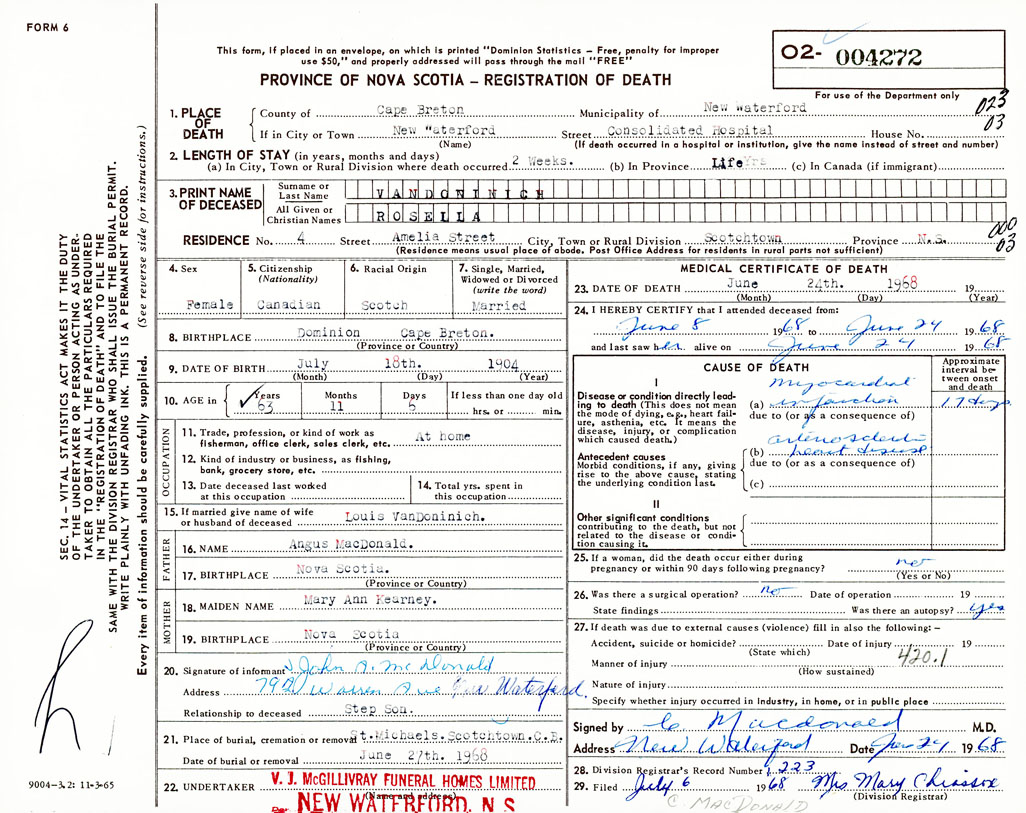 FORM 6
This form, if placed in an envelope, on which is printed "Dominion Statistics – Free, penalty for improper
use $50," and properly addressed will pass through the mail "FREE"
PROVINCE OF NOVA SCOTIA – REGISTRATION OF DEATH
02- 004272
For use of the Department only
023
03
1. PLACE OF DEATH
County of Cape Breton Municipality of New Waterford
If in City or Town New Waterford Street Consolidated Hospital House No.
(Name) (If death occurred in a hospital or institution, give the name instead of street and number)
2. LENGTH OF STAY (in years, months and days)
(a) In City, Town or Rural Division where death occurred 2 Weeks. (b) In Province Life Yrs (c) In Canada (if immigrant)
3. PRINT NAME OF DECEASED
Surname or Last Name VANDONINICH
All Given or Christian Names ROSELLA
000
03
RESIDENCE No. 4 Street Amelia Street City, Town or Rural Division Scotchtown Province N.S.
(Residence means usual place of abode. Post Office Address for residents in rural parts not sufficient)
4. Sex Female
5. Citizenship (Nationality) Canadian
6. Racial Origin Scotch
7. Single, Married, Widowed or Divorced (write the word) Married
8. BIRTHPLACE Dominion Cape Breton.
(Province or Country)
9. DATE OF BIRTH July 18th. 1904
(Month) (Day) (Year)
10. AGE in Years 63 Months 11 Days 5 If less than one day old hrs. or min.
OCCUPATION
11. Trade, profession, or kind of work as
fisherman, office clerk, sales clerk, etc. At home
12. Kind of industry or business, as fishing,
bank, grocery store, etc.
13. Date deceased last worked
at this occupation
14. Total yrs. spent in
this occupation
15. If married give name of wife
or husband of deceased Louis VanDoninich.
FATHER
16. NAME Angus MacDonald.
17. BIRTHPLACE Nova Scotia.
(Province or Country)
MOTHER
18. MAIDEN NAME Mary Ann Kearney.
19. BIRTHPLACE Nova Scotia
(Province or Country)
20. Signature of informant John A. McDonald
Address Warren Ave New Waterford.
Relationship to deceased Step Son.
21. Place of burial, cremation or removal St.Michaels.Scotchtown.C.B.
Date of burial or removal June 27th. 1968
22. UNDERTAKER V. J. McGILLIVRAY FUNERAL HOMES LIMITED
(Name and address)
Per NEW WATERFORD, N.S.
MEDICAL CERTIFICATE OF DEATH
23. DATE OF DEATH June 24th. 1968 19
(Month) (Day) (Year)
24. I HEREBY CERTIFY that I attended deceased from:
June 8 1968 to June 24 1968
and last saw her alive on June 24 1968
CAUSE OF DEATH
Approximate interval between onset and death
I
Disease or condition directly leading to death (This does not mean the mode of dying, e.g., heart failure, asthenia, etc. It means the disease, injury, or complication which caused death.)
(a) myocardial infarction 17 days
due to (or as a consequence of)
Antecedent causes
Morbid conditions, if any, giving rise to the above cause, stating the underlying condition last.
(b) arteriosclerotic heart disease
due to (or as a consequence of)
(c)
II
Other significant conditions
contributing to the death, but not related to the disease or condition causing it.
25. If a woman, did the death occur either during
pregnancy or within 90 days following pregnancy? no
(Yes or No)
26. Was there a surgical operation? no Date of operation 19
State findings Was there an autopsy? yes
27. If death was due to external causes (violence) fill in also the following: –
Accident, suicide or homicide? Date of injury 19
(State which)
420.1
Manner of injury
(How sustained)
Nature of injury
Specify whether injury occurred in industry, in home, or in public place
Signed by C Macdonald M.D.
Address New Waterford Date Jun 24 1968
28. Division Registrar's Record Number 223
29. Filed July 6 1968 Mrs Mary Chiasson
(Division Registrar)
C. MACDONALD
SEC. 14 – VITAL STATISTICS ACT MAKES IT THE DUTY
OF THE UNDERTAKER OR PERSON ACTING AS UNDER-
TAKER TO OBTAIN ALL THE PARTICULARS REQUIRED
IN THE "REGISTRATION OF DEATH" AND TO FILE THE
SAME WITH THE DIVISION REGISTRAR WHO SHALL ISSUE THE BURIAL PERMIT.
WRITE PLAINLY WITH UNFADING INK. THIS IS A PERMANENT RECORD.
Every item of information should be carefully supplied. (See reverse side for instructions.)
9004-3.2: 11-3-65